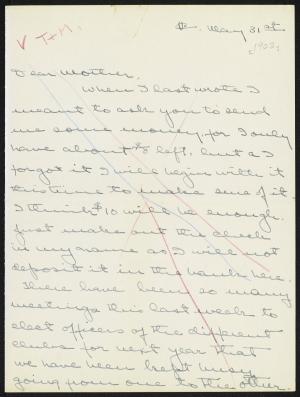 V T+M.
May 31st
Dear Mother,
When I last wrote I
meant to ask you to send
me some money, for I only
have about $ left, but as I
forgot it I will begin with it
this time to make sure of it.
I think $10 will be enough.
Just make out the check
in my name as I will not
deposit it in the bank here.
There have been so many
meetings this last week to
elect officers of the different
clubs for next year that
we have been kept busy
going from one to the other